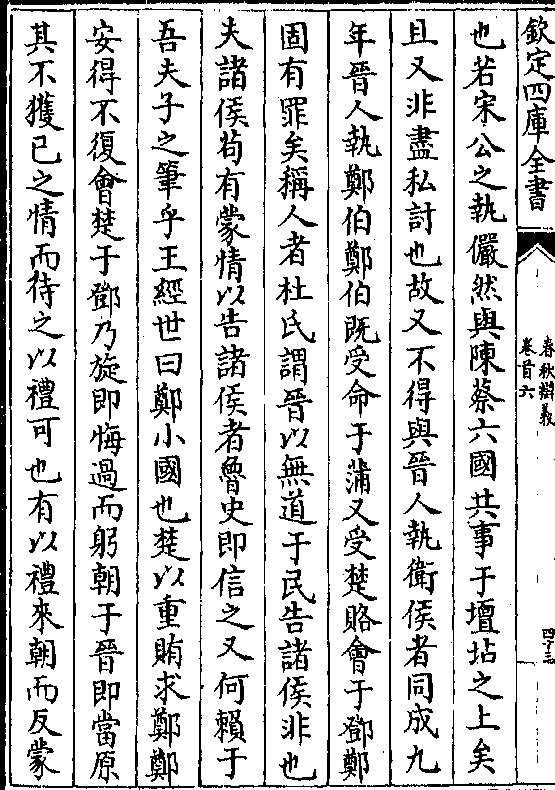 欽定四庫全書
春秋辯義
卷首六
也若宋公之執儼然與陳蔡六國共事于壇坫之上矣
且又非盡私討也故又不得與晉人執衛侯者同成九
年晉人執鄭伯鄭伯既受命于蒲又受楚賂會于鄧鄭
固有罪矣稱人者杜氏謂晉以無道于民告諸侯非也
夫諸侯茍有蒙情以告諸侯者魯史即信之又何賴于
吾夫子之筆乎王經世曰鄭小國也楚以重賄求鄭鄭
安得不復會楚于鄧乃旋即悔過而躬朝于晉即當原
其不獲已之情而待之以禮可也有以禮來朝而反蒙